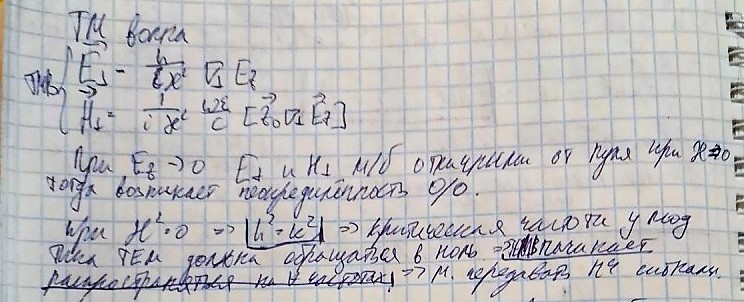 ТМ волна
E⃗⊥ = h/(iϰ²) ∇⊥ E_z
H⃗⊥ = 1/(iϰ²) ωε/c [z⃗₀ ∇⊥ E⃗_z]
При E_z → 0 E⊥ и H⊥ м/б отличными от нуля при ϰ→0
тогда возникает неопределённость 0/0.
при ϰ² = 0 => |h² = k²| => критическая частота у мод
типа ТЕМ должна обращаться в ноль => начинает
распространяться на ∀ частотах => м. передавать НЧ сигналы.